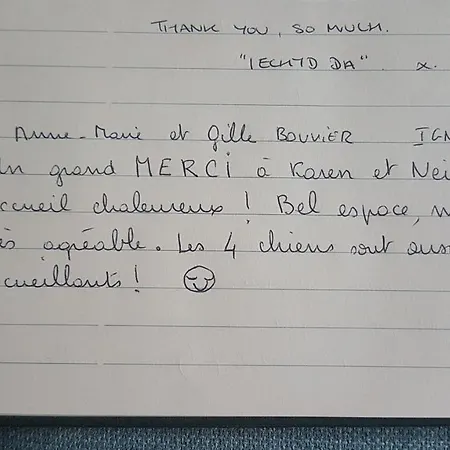 THANK YOU, SO MUCH.
"IECHYD DA" x.
Anne-Marie et Gille BOUVIER IGN
In grand MERCI à Karen et Nei
ccueil chaleureux ! Bel espace, n
ès agréable. Les 4 chiens sont auss
cueillants !